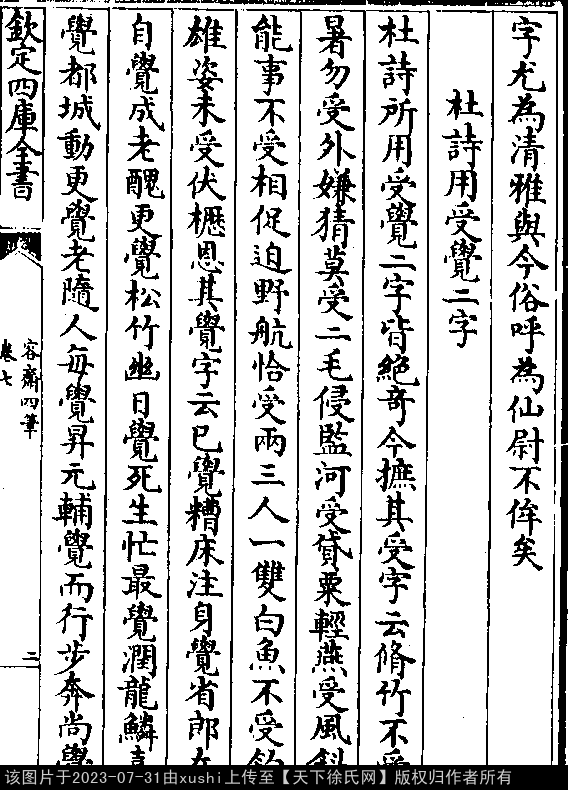 字尤為清雅與今俗呼為仙尉不侔矣
杜詩用受覺二字
杜詩所用受覺二字皆絕竒今摭其受字云脩竹不受
暑勿受外嫌猜莫受二毛侵監河受貸粟輕燕受風斜
能事不受相促迫野航恰受兩三人一雙白魚不受釣
雄姿未受伏櫪恩其覺字云已覺糟床注身覺省郎在
自覺成老醜更覺松竹幽日覺死生忙最覺潤龍鱗喜
覺都城動更覺老隨人每覺昇元輔覺而行步奔尚覺
欽定四庫全書
容齋四筆
卷七
二
该图片于2023-07-31由xushi上传至【天下徐氏网】版权归作者所有